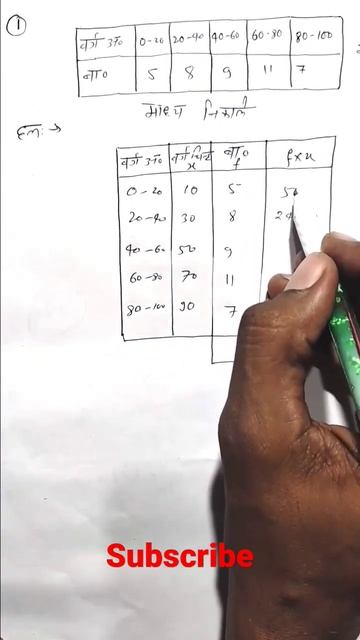 ①
वर्ग अ० 0-20 20-40 40-60 60-80 80-100
बा० 5 8 9 11 7
माध्य निकालें
हलः→
वर्ग अ० वर्ग चिन्ह x बा० f f×x
0-20 10 5 50
20-40 30 8 24
40-60 50 9
60-80 70 11
80-100 90 7
Subscribe